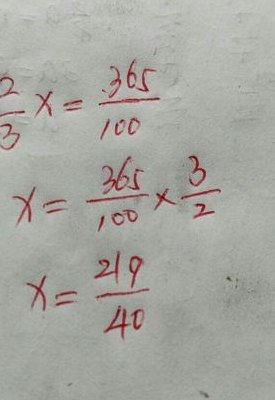 2/3 x = 365/100
x = 365/100 × 3/2
x = 219/40